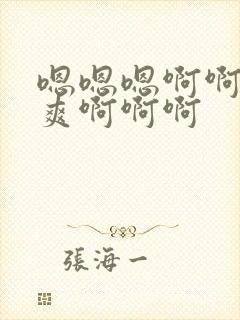 嗯嗯嗯啊啊
爽啊啊啊
張海一